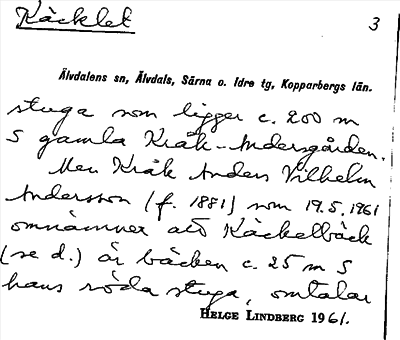 Käcklet 3
Älvdalens sn, Älvdals, Särna o. Idre tg, Kopparbergs län.
stuga som ligger c. 200 m
S gamla Kråk-Andersgården.
Men Kråk Anders Vilhelm
Andersson (f. 1881) som 19.5.1961
omnämner att Käckelbäck
(se d.) är bäcken c. 25 m S
hans röda stuga, omtalar
HELGE LINDBERG 1961.